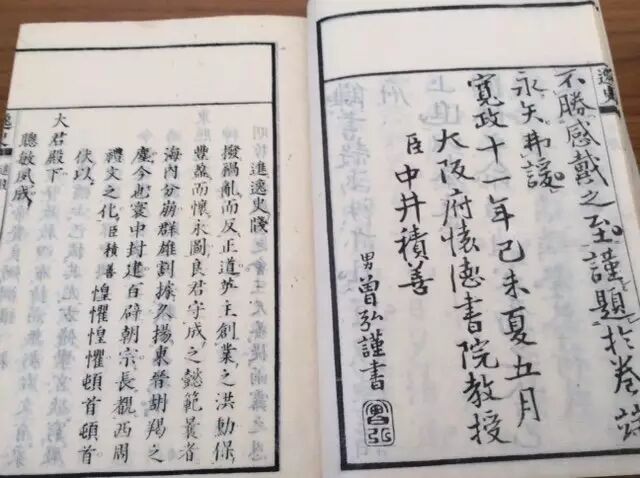 逸史
不勝感戴之至謹題於卷端
永矢弗諼
寬政十一年己未夏五月
大阪府懷德書院教授
臣中井積善
男曽弘謹書
曽弘
進逸史牋
撥禍亂而反正道英主創業之洪勳保
豐盈而懷永圖良君守成之懿範曩者
海內分崩群雄割據久揚東晉胡羯之
塵今也寰中封建百辟朝宗長觀西周
禮文之化臣積善惶懼惶懼頓首頓首
伏以
大君殿下
聰敏夙成
逸史